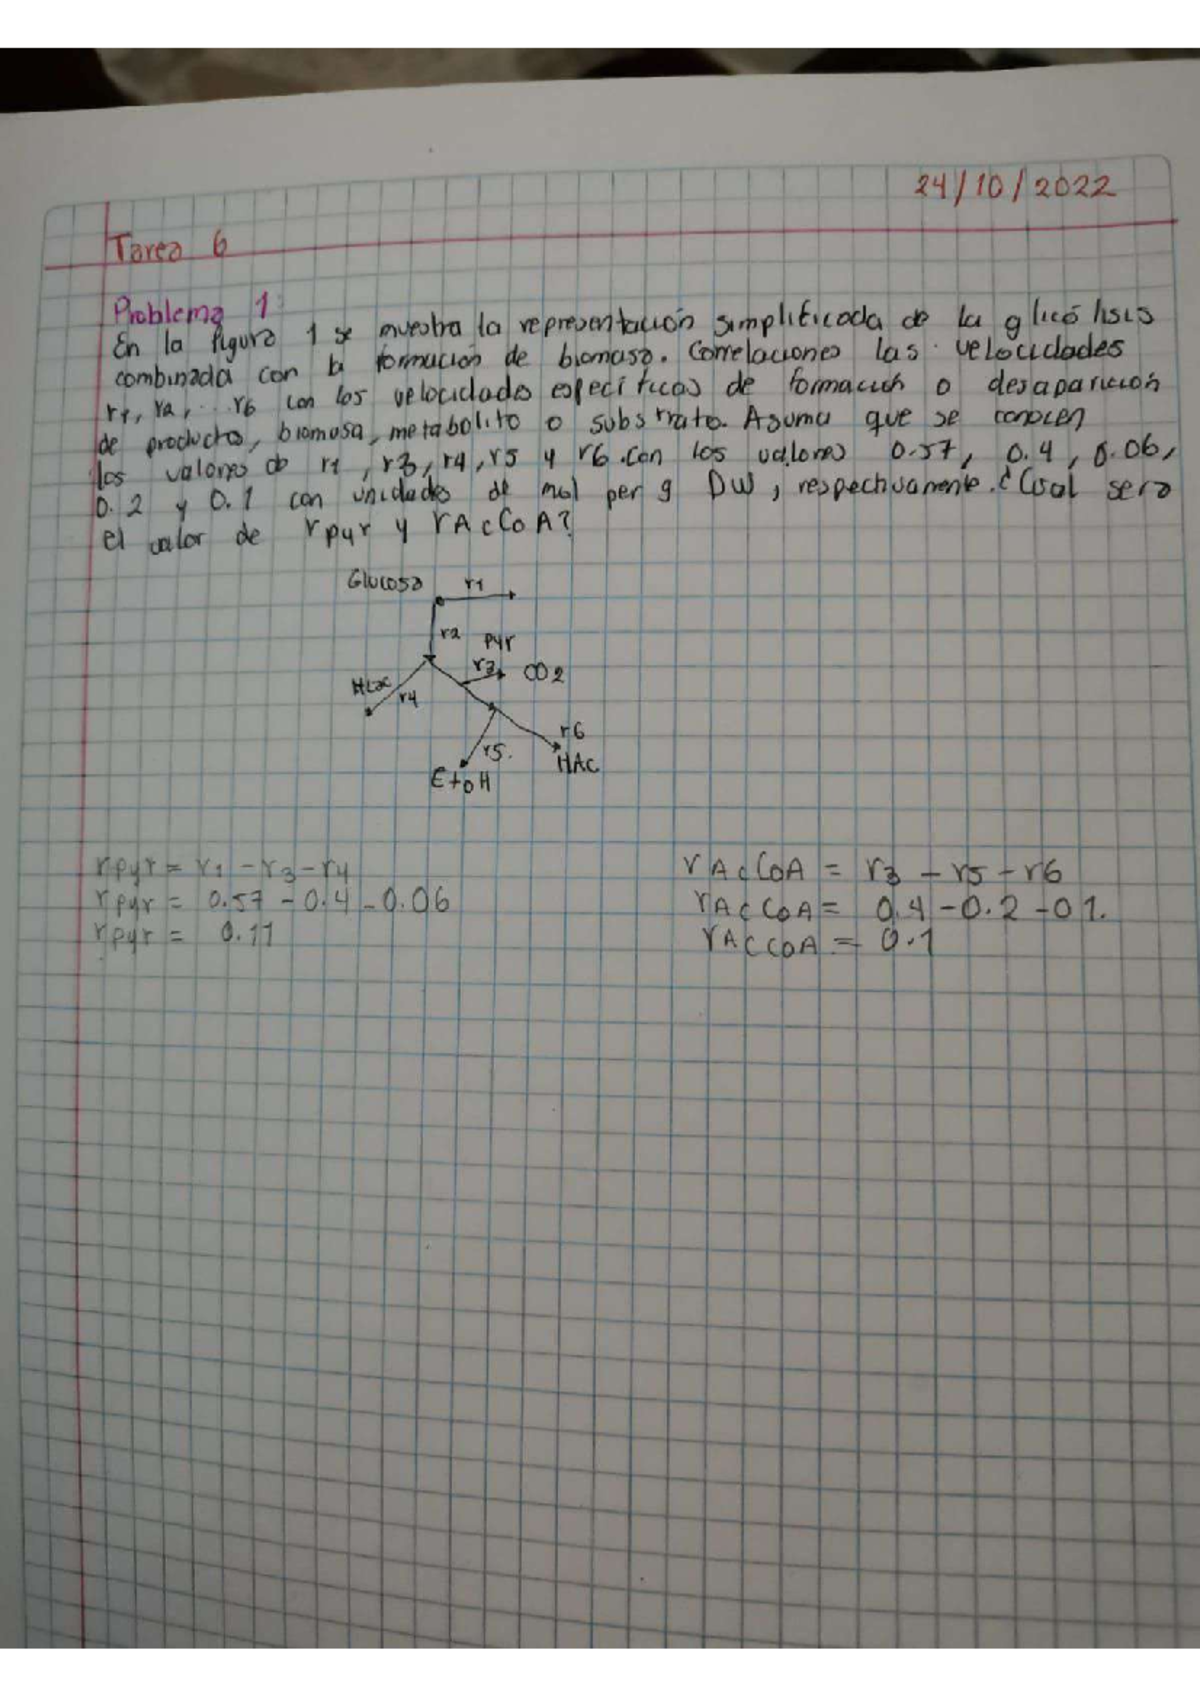 24/10/2022
Tarea 6
Problema 1:
En la figura 1 se muestra la representación simplificada de la glicólisis
combinada con la formación de biomasa. Correlaciones las velocidades
r1, ra, ... r6 con los velocidades específicas de formación o desaparición
de productos, biomasa, metabolito o substrato. Asuma que se conocen
los valores de r1, r3, r4, r5 y r6. con los valores 0.57, 0.4, 0.06,
0.2 y 0.1 con unidades de mol per g DW, respectivamente. ¿Cual sera
el valor de rpyr y rAcCoA?
Glucosa r1
r2 pyr
r3 CO2
HLac r4
r6
r5. HAc
EtoH
rpyr = r1 - r3 - r4
rpyr = 0.57 - 0.4 - 0.06
rpyr = 0.11
rAcCoA = r3 - r5 - r6
rAcCoA = 0.4 - 0.2 - 01.
rAcCoA = 0.1